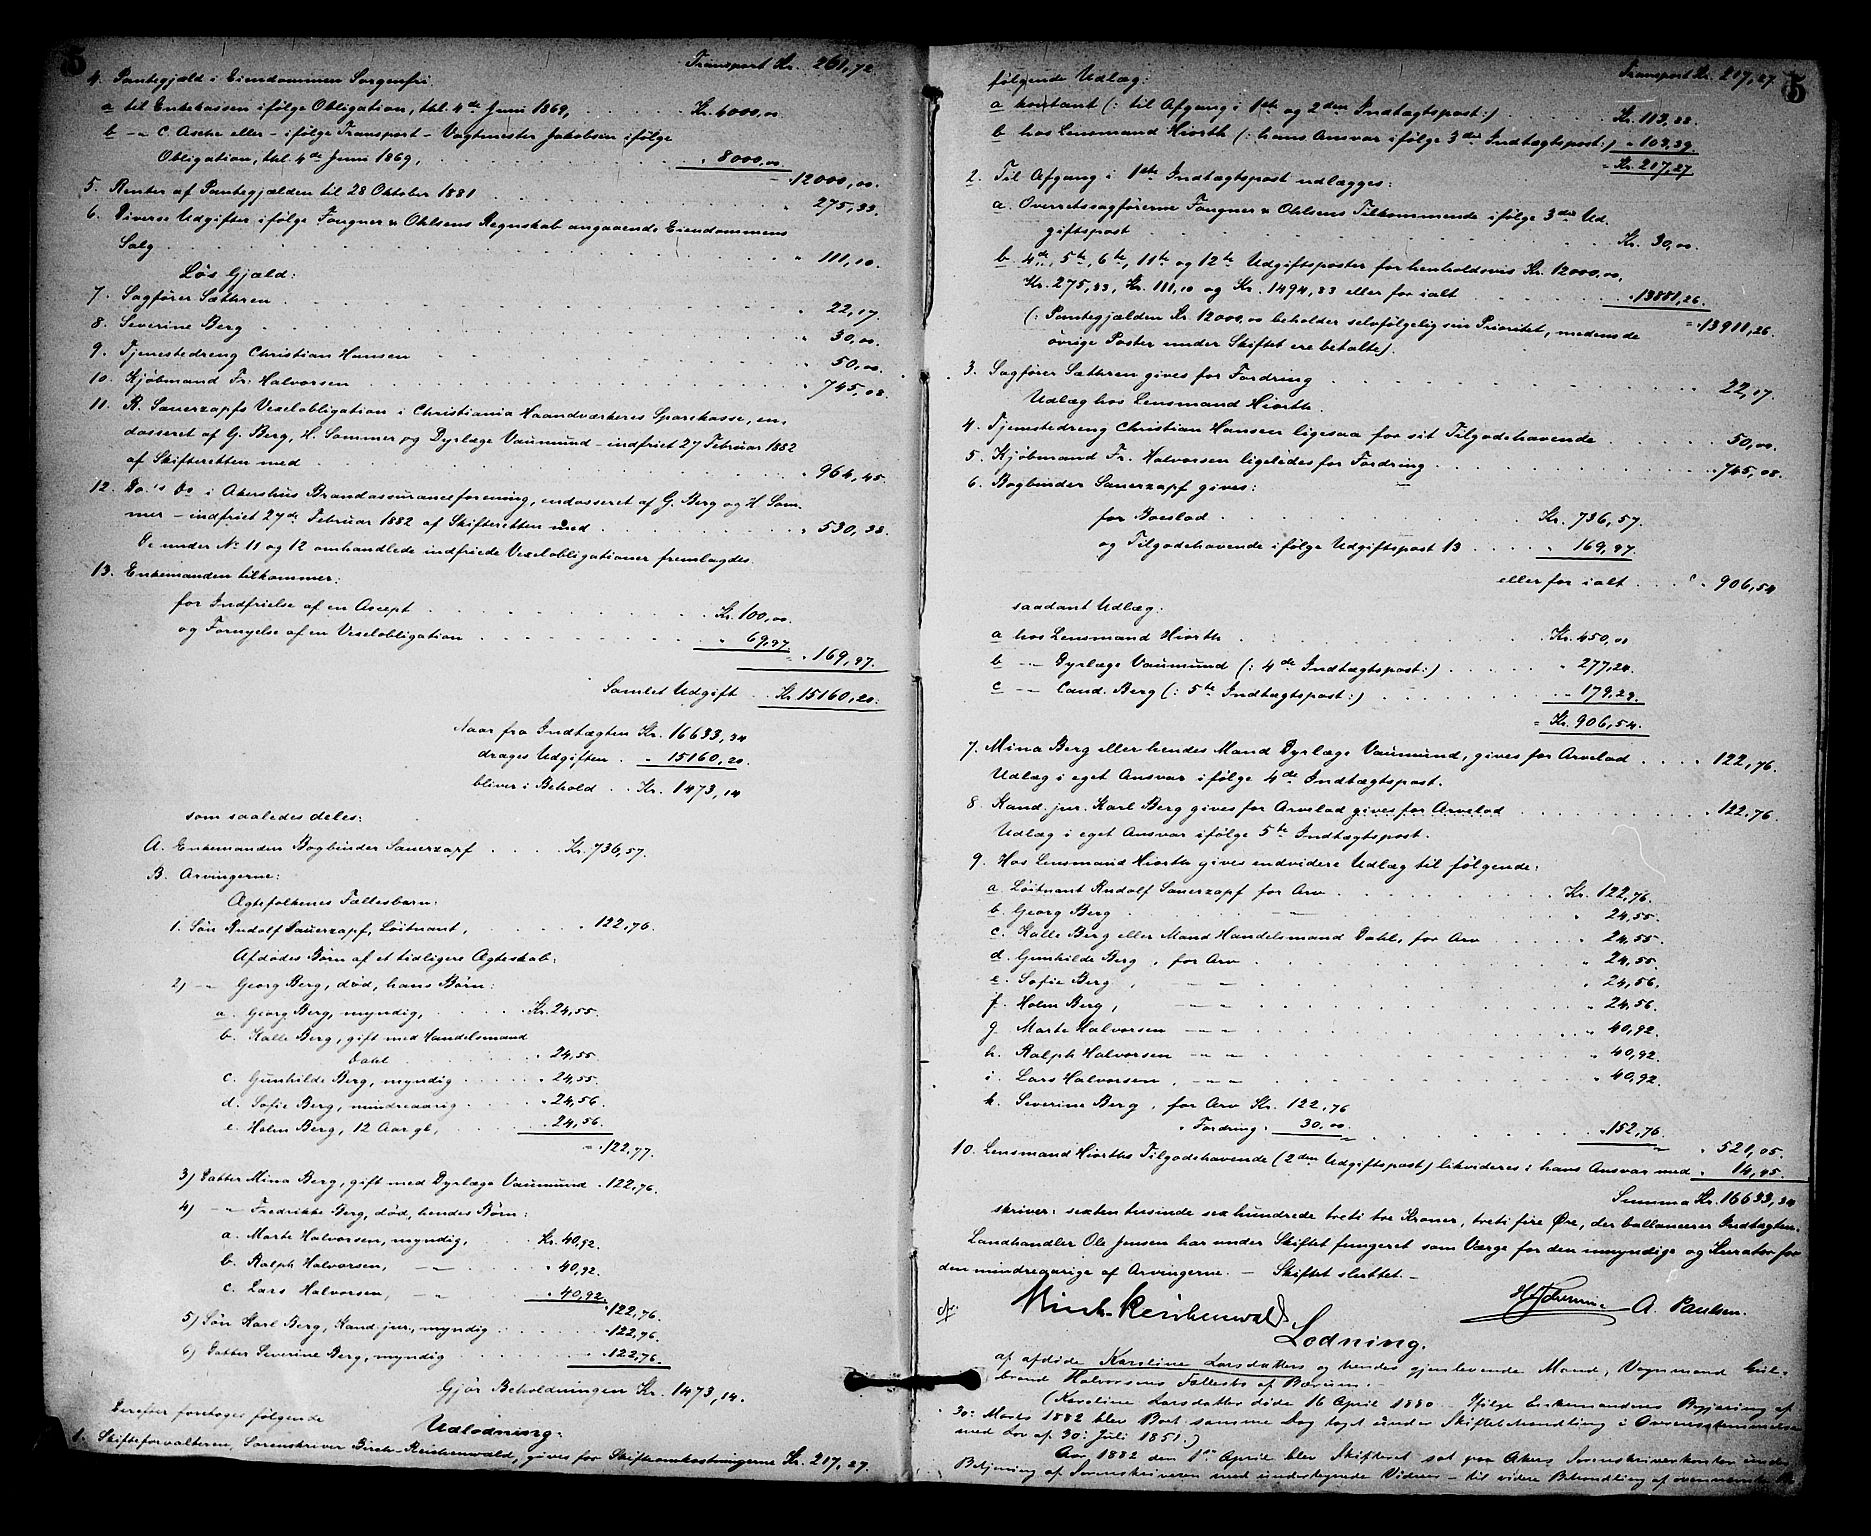 5
Transport Kr. 261,72
4. Pantegjæld i Eiendommen Sorgenfri:
a til Enkekassen ifølge Obligation, thl. 4de Juni 1869, Kr. 4000,00
b -"- C. Asche eller - ifølge Transport - Vagtmester Jakobsen ifølge
Obligation, thl. 4de Juni 1869, " 8000,00
" 12000,00.
5. Renter af Pantegjælden til 28 Oktober 1881 " 275,33.
6. Diverse Udgifter ifølge Fougner & Ohlsens Regnskab angaaende Eiendommens
Salg " 111,10.
Løs Gjæld:
7. Sagfører Sæthren " 22,17.
8. Severine Berg " 30,00.
9. Tjenestedreng Christian Hansen " 50,00.
10. Kjøbmand Fr. Halvorsen " 745,08.
11. R. Sauerzapfs Vexelobligation i Christiania Haandværkeres Sparekasse, en,
dosseret af G. Berg, H. Sommer og Dyrlæge Vaumund - indfriet 27 Februar 1882
af Skifteretten med " 964,45.
12. Do.'s do i Akershus Brandassuranceforening, endosseret af G. Berg og H. Som,
mer - indfriet 27de Februar 1882 af Skifteretten med " 530,38.
De under No 11 og 12 omhandlede indfriede Vexelobligationer fremlagdes.
13. Enkemanden tilkommer:
for Indfrielse af en Accept Kr. 100,00.
og Fornyelse af en Vexelobligation " 69,97
" 169,97.
Samlet Udgift Kr. 15160,20.
Naar fra Indtægten Kr. 16633,34
drages Udgiften " 15160,20.
bliver i Behold Kr. 1473,14
som saaledes deles:
A. Enkemanden Bogbinder Sauerzapf Kr. 736,57.
B. Arvingerne:
Ægtefolkenes Fællesbarn:
1. Søn Rudolf Sauerzapf, Løitnant, " 122,76.
Afdødes Børn af et tidligere Ægteskab:
2) -"- Georg Berg, død, hans Børn:
a. Georg Berg, myndig, Kr. 24,55.
b. Kalle Berg, gift med Handelsmand
Dahl " 24,55
c. Gunhilde Berg, myndig " 24,55.
d. Sofie Berg, mindreaarig " 24,56
e. Holm Berg, 12 Aar gl, " 24,56.
" 122,77.
3) Datter Mina Berg, gift med Dyrlæge Vaumund " 122,76.
4) -"- Fredrikke Berg, død, hendes Børn:
a. Marte Halvorsen, myndig, Kr. 40,92.
b. Ralph Halvorsen, -"- " 40,92.
c. Lars Halvorsen, -"- " 40,92.
" 122,76.
5) Søn Karl Berg, Kand. jur., myndig " 122,76.
6) Datter Severine Berg, myndig " 122,76.
Gjør Beholdningen Kr. 1473,14.
Derefter foretoges følgende
Udlodning:
1. Skifteforvalteren, Sorenskriver Birch-Reichenwald, gives for Skifteomkostningerne Kr. 217,27.
5
Transport Kr. 217,27
følgende Udlæg:
a kontant (: til Afgang i 1ste og 2den Indtægtspost:) Kr. 113,88
b hos Lensmand Hiorth (: hans Ansvar ifølge 3die Indtægtspost:) " 103,39.
Kr. 217,27
2. Til Afgang i 1ste Indtægtspost udlægges:
a. Overretssagførerne Fougner & Ohlsens Tilkommende ifølge 3die Ud,
giftspost Kr. 30,00.
b 4de, 5te, 6te, 11te og 12te Udgiftsposter for henholdsvis Kr. 12000,00,
Kr. 275,33, Kr. 111,10 og Kr. 1494,83 eller for ialt " 13881,26.
" 13911,26.
(: Pantegjælden Kr. 12000,00 beholder selvfølgelig sin Prioritet, medens de
øvrige Poster under Skiftet ere betalte).
3. Sagfører Sæthren gives for Fordring " 22,17.
Udlæg hos Lensmand Hiorth.
4. Tjenestedreng Christian Hansen ligesaa for sit Tilgodehavende " 50,00.
5. Kjøbmand Fr. Halvorsen ligeledes for Fordring " 745,08.
6. Bogbinder Sauerzapf gives:
for Boeslod Kr. 736,57.
og Tilgodehavende ifølge Udgiftspost 13 " 169,97.
eller for ialt " 906,54
saadant Udlæg:
a hos Lensmand Hiorth Kr. 450,00
b -"- Dyrlæge Vaumund (: 4de Indtægtspost:) " 277,24.
c -"- Cand. Berg (: 5te Indtægtspost:) " 179,29.
Kr. 906,54.
7. Mina Berg eller hendes Mand Dyrlæge Vaumund, gives for Arvelod " 122,76.
Udlæg i eget Ansvar ifølge 4de Indtægtspost.
8. Kand. jur. Karl Berg gives for Arvelod gives for Arvelod " 122,76.
Udlæg i eget Ansvar ifølge 5te Indtægtspost.
9. Hos Lensmand Hiorth gives endvidere Udlæg til følgende:
a Løitnant Rudolf Sauerzapf for Arv Kr. 122,76.
b. Georg Berg -"- " 24,55
c. Kalle Berg eller Mand Handelsmand Dahl, for Arv " 24,55
d. Gunhilde Berg, for Arv " 24,55.
e. Sofie Berg, -"- " 24,56.
f. Holm Berg, -"- " 24,56.
g. Marte Halvorsen -"- " 40,92.
h. Ralph Halvorsen -"- " 40,92
i. Lars Halvorsen, -"- " 40,92.
k. Severine Berg, for Arv Kr. 122,76
" Fordring " 30,00
" 152,76.
" 521,05.
10. Lensmand Hiorths Tilgodehavende (2den Udgiftspost) likvideres i hans Ansvar med " 14,45
Summa Kr. 16633,34
skriver: sexten tusinde sex hundrede treti tre Kroner, treti fire Øre, der ballancerer Indtægten.
Landhandler Ole Jensen har under Skiftet fungeret som Værge for den umyndige og Kurator for
den mindreaarige af Arvingerne. - Skiftet sluttet. -
Birch-Reichenwald
A. Paulsen.
Lodning.
af afdøde Karoline Larsdatters og hendes gjenlevende Mand, Vognmand Gul-
brand Halvorsens Fællesbo af Bærum. -
(Karoline Larsdatter døde 16 April 1880. Ifølge Enkemandens Begjæring af
30. Marts 1882 blev Boet samme Dag taget under Skiftebehandling i Overensstemmelse
med Lov af 30. Juli 1851.)
Aar 1882 den 1ste April blev Skifteret sat paa Akers Sorenskriverkontor under
Betjening af Sorenskriveren med undertegnede Vidner - til videre Behandling af ovennævnte Bo